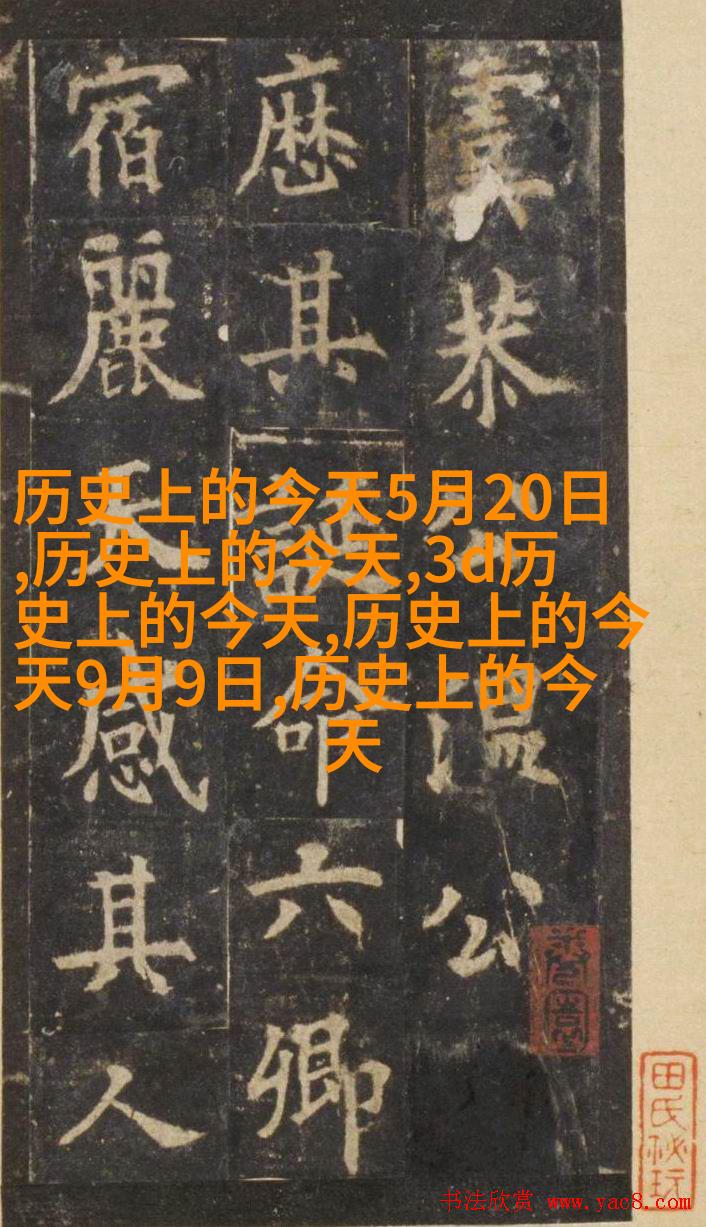 虞恭公溫公
歴其誕命六卿
宿麗天感其人
历史上的今天5月20日
,历史上的今天,3d历
史上的今天,历史上的今
天9月9日,历史上的今
天
田氏秘玩
书法欣赏 www.yac8.com